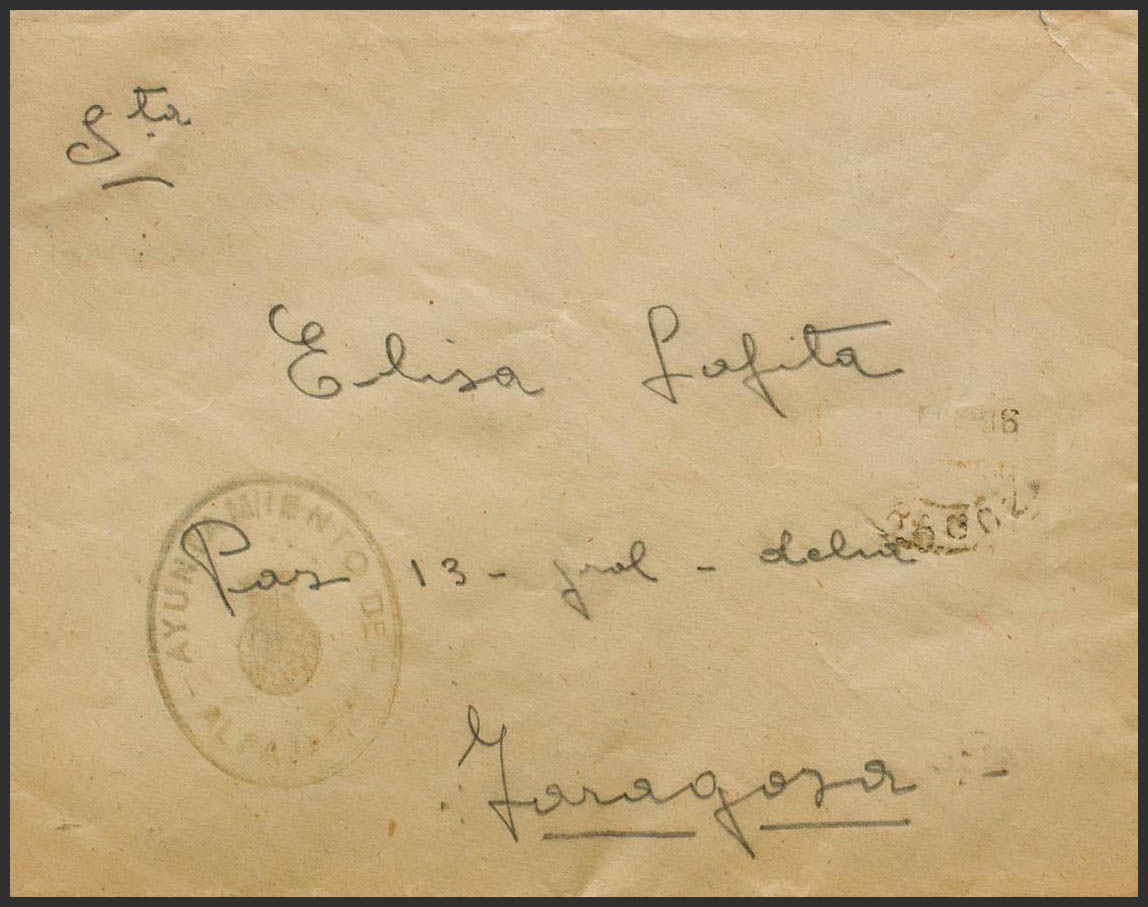 Sta
Elisa Lafita
Paz 13 - pral - dcha
Zaragoza -
- AYUNTAMIENTO DE -
ALFAJARIN